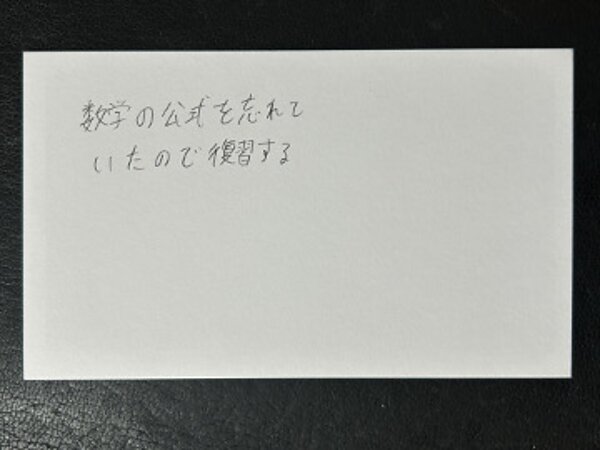 数学の公式を忘れて
いたので復習する